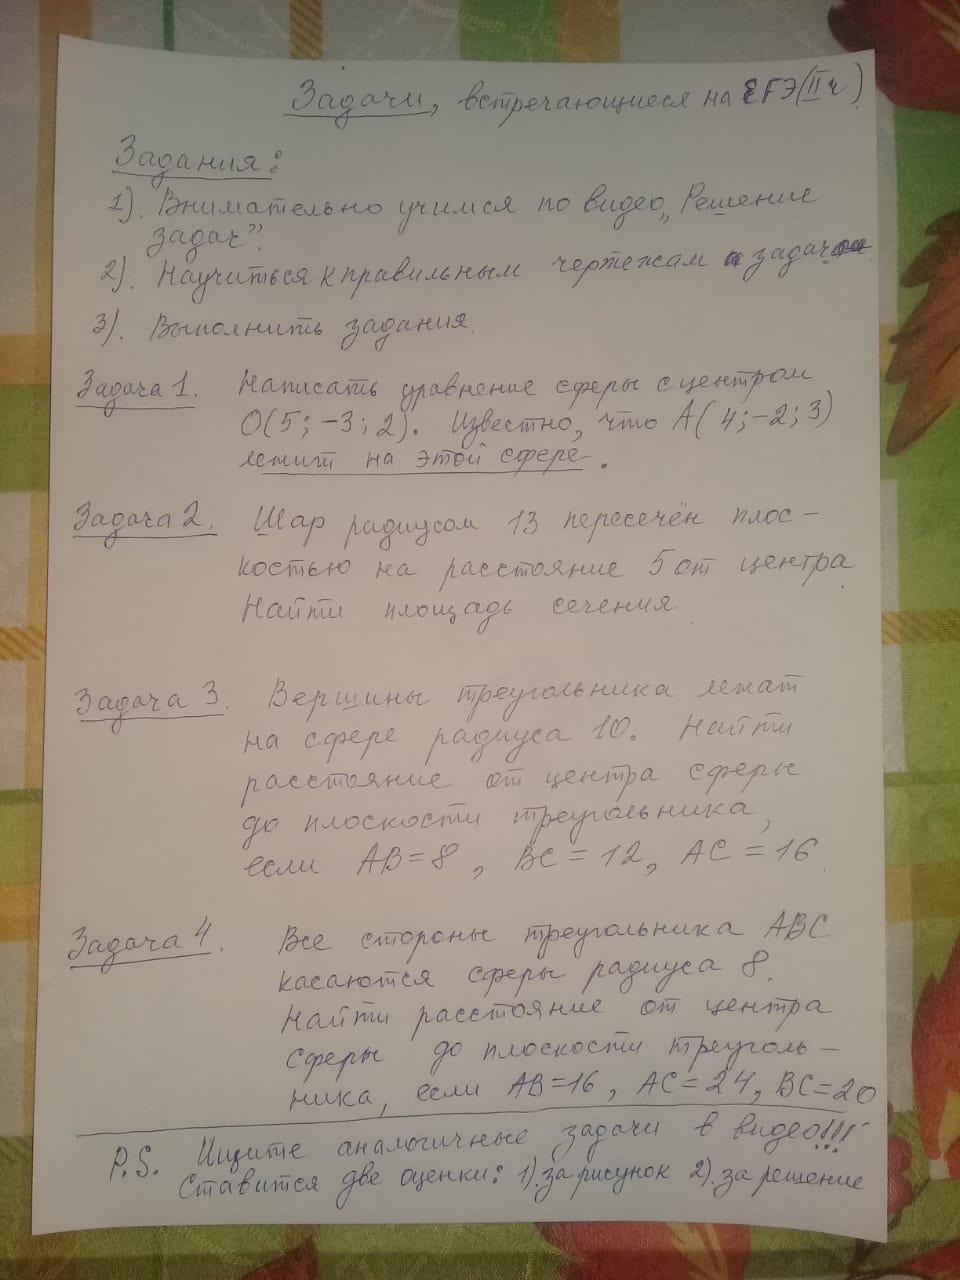 Задачи, встречающиеся на ЕГЭ(II ч)
Задания:
1). Внимательно учимся по видео „Решение
задач”.
2). Научиться к правильным чертежам задач
3). Выполнить задания.
Задача 1. Написать уравнение сферы с центром
O(5; -3; 2). Известно, что A(4; -2; 3)
лежит на этой сфере.
Задача 2. Шар радиусом 13 пересечён плос-
костью на расстояние 5 от центра
Найти площадь сечения
Задача 3. Вершины треугольника лежат
на сфере радиуса 10. Найти
расстояние от центра сферы
до плоскости треугольника,
если AB=8, BC=12, AC=16
Задача 4. Все стороны треугольника ABC
касаются сферы радиуса 8.
Найти расстояние от центра
сферы до плоскости треуголь-
ника, если AB=16, AC=24, BC=20
P.S. Ищите аналогичные задачи в видео!!!
Ставится две оценки: 1). за рисунок 2). за решение